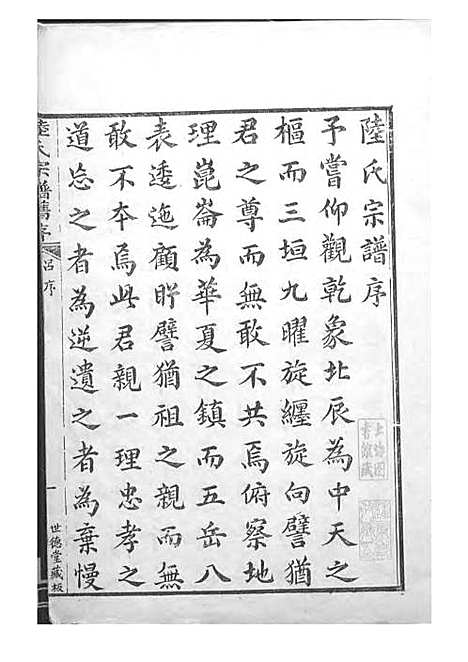 陸氏宗譜序
予嘗仰觀乾象北辰為中天之
樞而三垣九曜旋纏旋向譬猶
君之尊而無敢不共焉俯察地
理崑崙為華夏之鎮而五岳八
表逶迤顧盼譬猶祖之親而無
敢不本焉此君親一理忠孝之
道忘之者為逆遺之者為棄慢
陸氏宗譜舊序
呂序
一
世德堂藏板
上海圖
書館藏